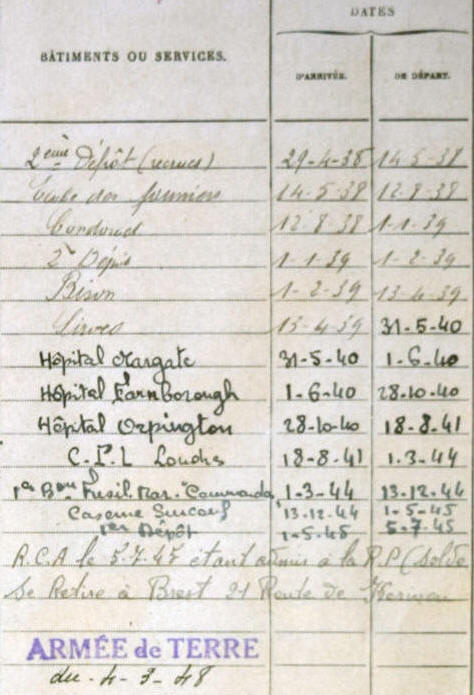 DATES
BÂTIMENTS OU SERVICES. D'ARRIVÉE. DE DÉPART.
2ème Dépôt (recrues) 29-4-38 14-5-38
École des fourriers 14-5-38 12-8-38
Condorcet 12-8-38 1-1-39
2e Dépôt 1-1-39 1-2-39
Bison 1-2-39 13-4-39
Sirocco 13-4-39 31-5-40
Hôpital Margate 31-5-40 1-6-40
Hôpital Farnborough 1-6-40 28-10-40
Hôpital Orpington 28-10-40 18-8-41
C.F.L Londres 18-8-41 1-3-44
1er Bon Fusil. Mar. Commandos 1-3-44 13-12-44
Caserne Surcouf 13-12-44 1-5-45
1er Dépôt 1-5-45 5-7-45
R.C.A le 5.7.45 étant admis à la R.P (solde
Se Retire à Brest 21 Route de
ARMÉE de TERRE
du - 4 - 3 - 48